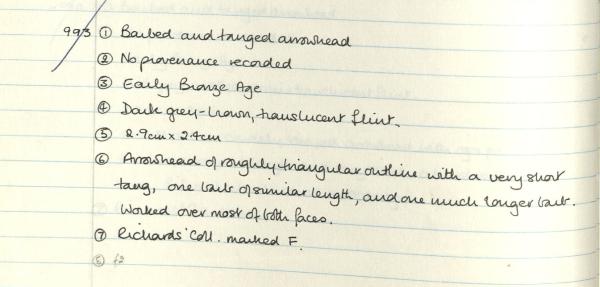 993 ① Barbed and tanged arrowhead
② No provenance recorded
③ Early Bronze Age
④ Dark grey-brown, translucent flint.
⑤ 2.9cm x 2.4cm
⑥ Arrowhead of roughly triangular outline with a very short
tang, one barb of similar length, and one much longer barb.
Worked over most of both faces.
⑦ Richards' Coll. marked F.
⑧ f2